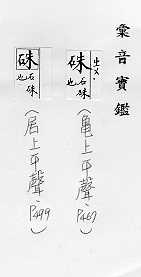 彙音寶鑑
硃 出文
石硃也
（龜上平聲、P467）
硃
石硃也
（居上平聲、P499）